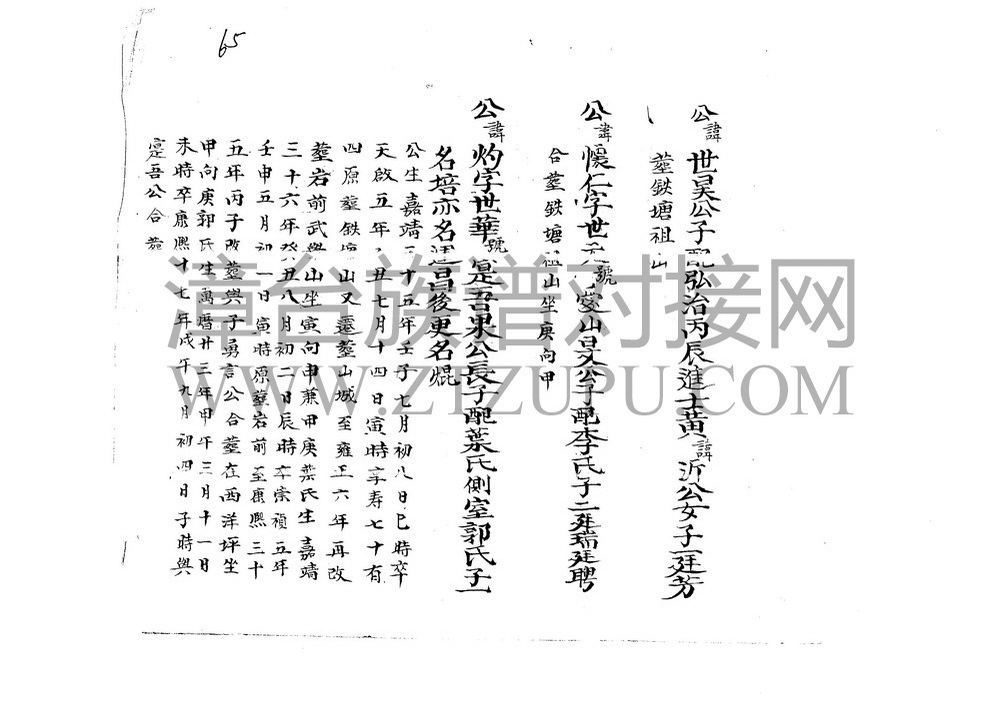 65
公諱世昊公子配弘治丙辰進士黃諱沂公女子一廷芳
葬鉄塘祖山
公諱懷仁字世 號愛山 公子配李氏子二廷瑞廷聘
合葬鉄塘祖山坐庚向甲
公諱灼字世華號 是吾果公長子配葉氏側室郭氏子一
名培亦名 昌後更名焜
公生嘉靖三十五年壬子七月初八日巳時卒
天啟五年 丑七月十四日寅時享寿七十有
四原葬鉄塘山又遷葬山城至雍正六年再改
葬岩前武 山坐寅向申兼甲庚葉氏生嘉靖
三十六年癸丑八月初二日辰時卒崇禎五年
壬申五月初一日寅時原葬岩前至康熙三十
五年丙子改葬與子勇言公合葬在西洋坪坐
甲向庚郭氏生萬曆廿三年甲午三月十一日
未時卒康熙十七年戊午九月初四日子時與
寔吾公合葬
漳台族谱对接网
WWW.ZTZUPU.COM